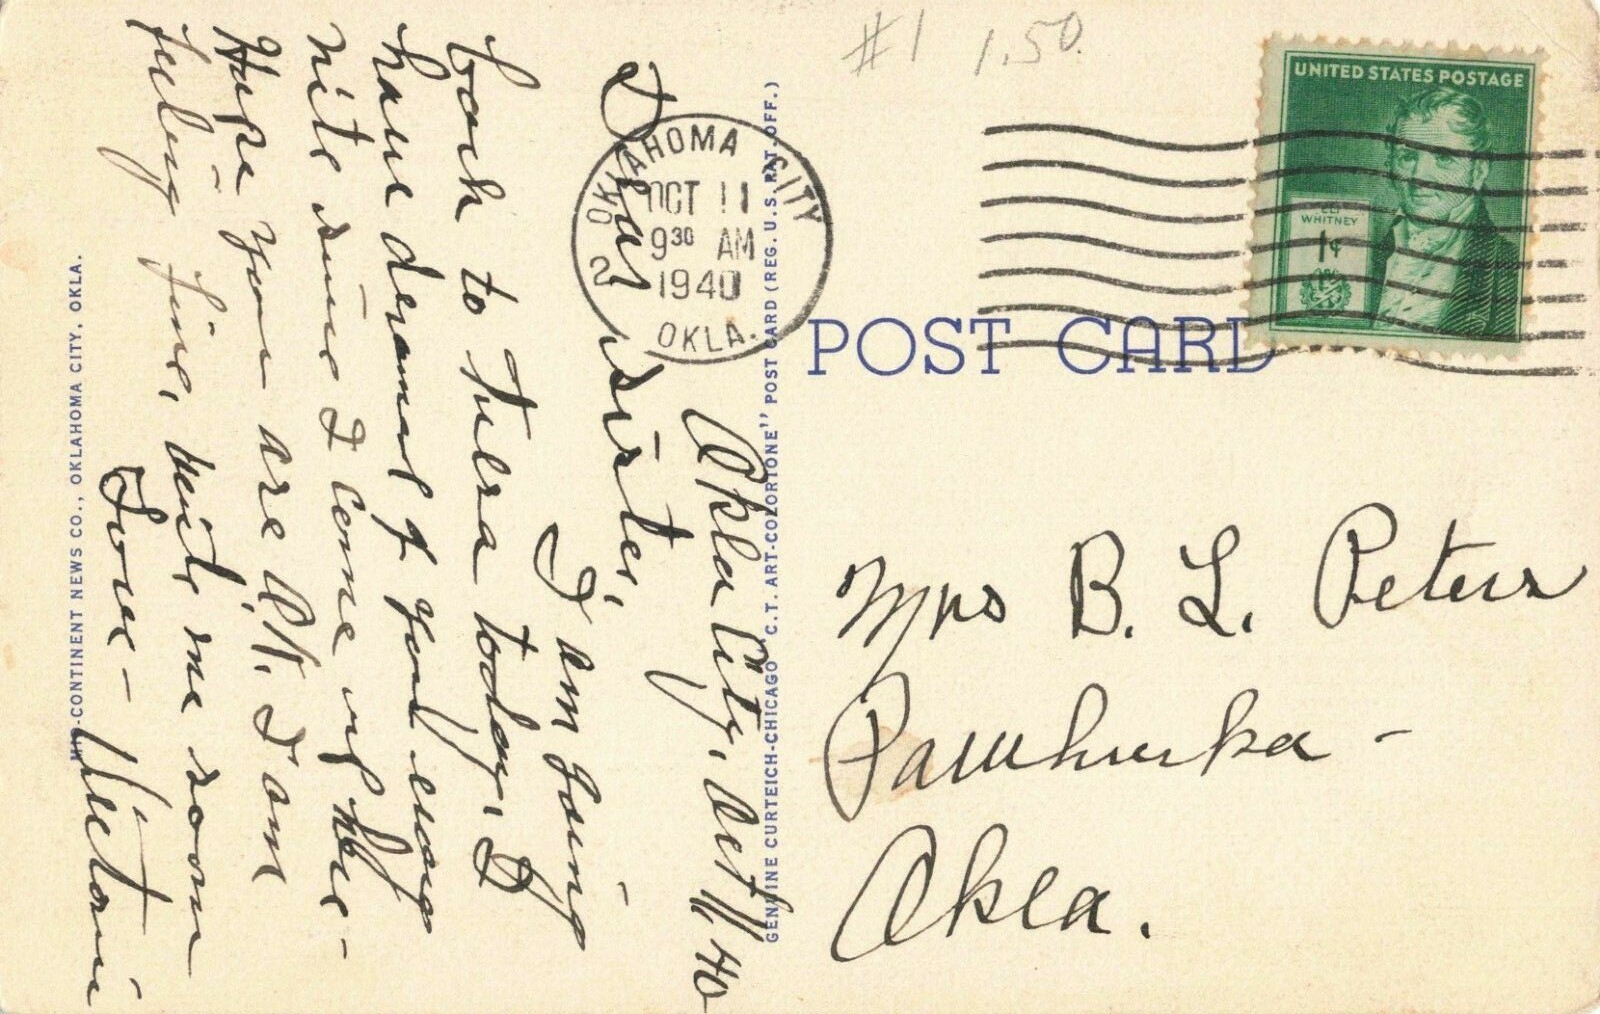 #1 1.50
UNITED STATES POSTAGE
ELI
WHITNEY
1¢
OKLAHOMA CITY
OCT 11
9 30 AM
1940
OKLA.
2
POST CARD
Okla City, Oct 11, 40
Dear sister,
I am going
back to Tulsa today, I
have dreamed of you every
nite since I come up here -
Hope you are O.K. I am
feeling fine, write me soon
Love - Victoria
Mrs B. L. Peters
Pawhuska -
Okla.
GENUINE CURTEICH-CHICAGO "C.T. ART-COLORTONE" POST CARD (REG. U.S. PAT. OFF.)
MID-CONTINENT NEWS CO., OKLAHOMA CITY, OKLA.